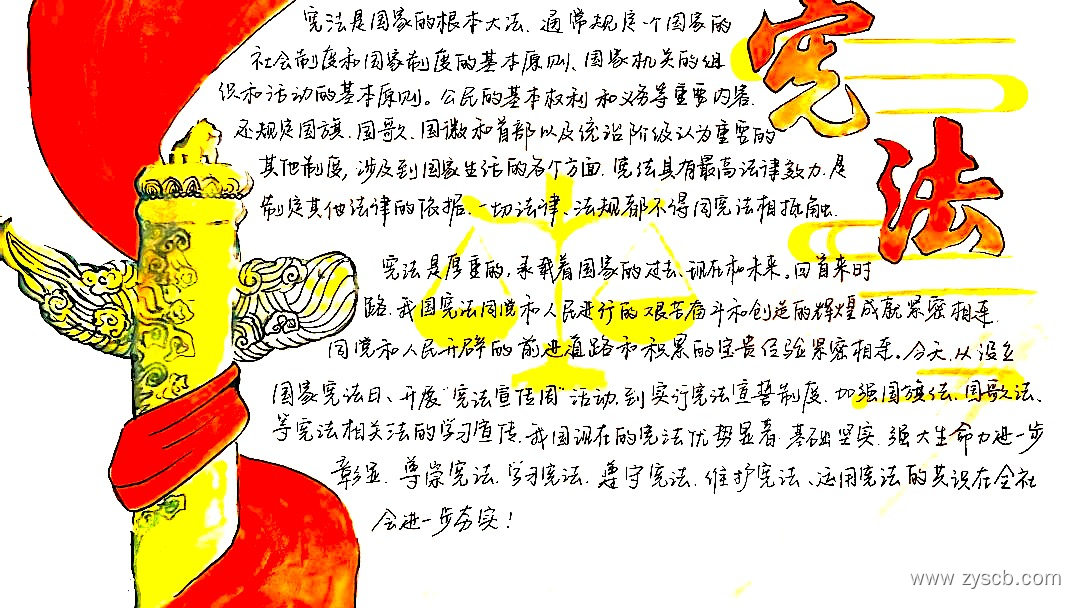 宪法
宪法是国家的根本大法、通常规定一个国家的
社会制度和国家制度的基本原则、国家机关的组
织和活动的基本原则。公民的基本权利和义务等重要内容.
还规定国旗、国歌、国徽和首都以及统治阶级认为重要的
其他制度,涉及到国家生活的各个方面.宪法具有最高法律效力.是
制定其他法律的依据.一切法律、法规都不得同宪法相抵触.
宪法是厚重的,承载着国家的过去、现在和未来.回首来时
路.我国宪法同党和人民进行的艰苦奋斗和创造的辉煌成就紧密相连.
同党和人民开辟的前进道路和积累的宝贵经验紧密相连。今天,从设立
国家宪法日、开展"宪法宣传周"活动,到实行宪法宣誓制度.加强国旗法、国歌法、
等宪法相关法的学习宣传.我国现在的宪法优势显着.基础坚实.强大生命力进一步
彰显.尊崇宪法.学习宪法.遵守宪法.维护宪法、运用宪法的共识在全社
会进一步夯实!
www.zyscb.com